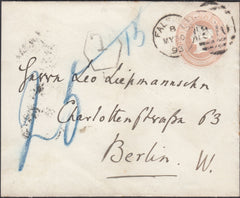 FAL
MY
96
25
Herrn Leo Liepmannssohn
Charlottenstraße 63
Berlin. W.